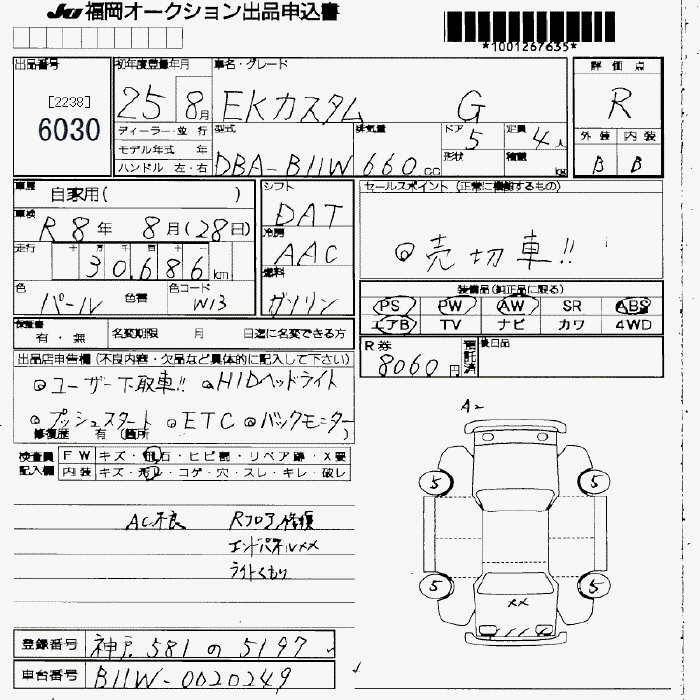 JU 福岡オークション出品申込書
*1001267635*
出品番号
[2238]
6030
初年度登録年月
25 8月
車名・グレード
EKカスタム G
評価点
R
外装 内装
B B
ディーラー・並行
モデル年式 年
ハンドル 左・右
型式
DBA-B11W
排気量
660cc
ドア
5
形状
定員
4人
積載
kg
車歴
自家用( )
車検
R8年 8月(28日)
走行
30,686km
色
パール
色替
色コード
W13
シフト
DAT
冷房
AAC
燃料
ガソリン
セールスポイント (正常に機能するもの)
◎売切車!!
装備品(純正品に限る)
PS PW AW SR ABS
エアB TV ナビ カワ 4WD
保証書
有・無
名変期限 月 日迄に名変できる方
R券
8060円
預託済
後日品
出品店申告欄 (不良内容・欠品など具体的に記入して下さい)
◎ユーザー下取車!! ◎HIDヘッドライト
◎プッシュスタート ◎ETC ◎バックモニター
修復歴 有 (箇所
検査員記入欄
FW キズ・飛石・ヒビ割・リペア跡・X要
内装 キズ・汚れ・コゲ・穴・スレ・キレ・破レ
AC不良 Rフロア修復
エンドパネルXX
ライトくもり
A2
5 5
5 5
XX
登録番号 神戸 581 の 5197
車台番号 B11W-0020249